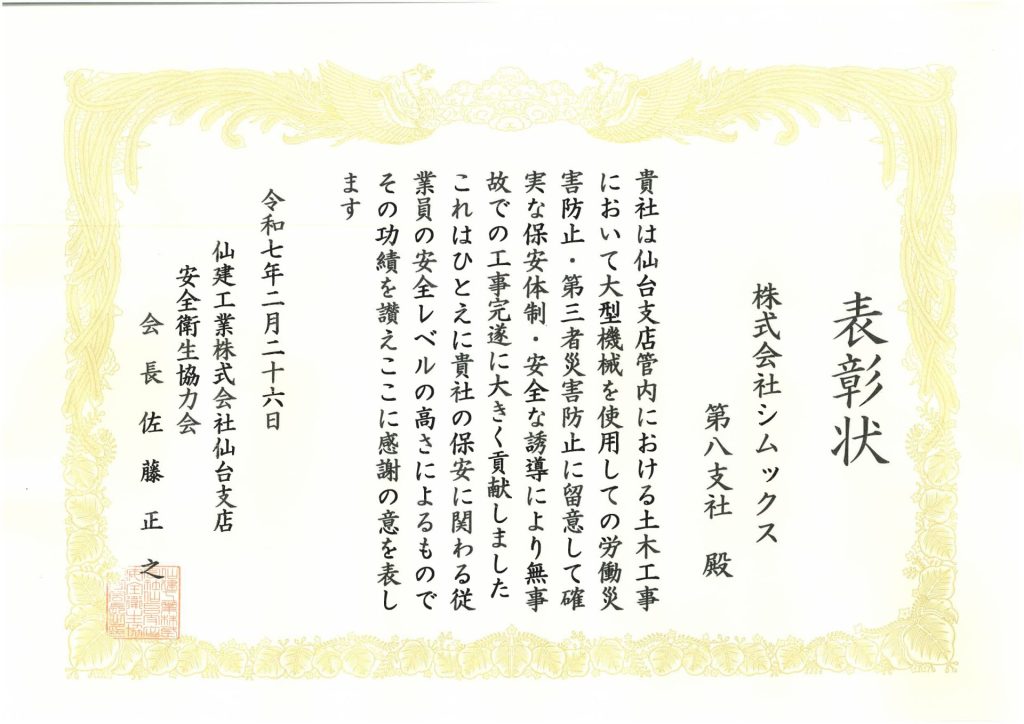 表彰状
株式会社シムックス
第八支社 殿
貴社は仙台支店管内における土木工事
において大型機械を使用しての労働災
害防止・第三者災害防止に留意して確
実な保安体制・安全な誘導により無事
故での工事完遂に大きく貢献しました
これはひとえに貴社の保安に関わる従
業員の安全レベルの高さによるもので
その功績を讃えここに感謝の意を表し
ます
令和七年二月二十六日
仙建工業株式会社仙台支店
安全衛生協力会
会長 佐藤正之